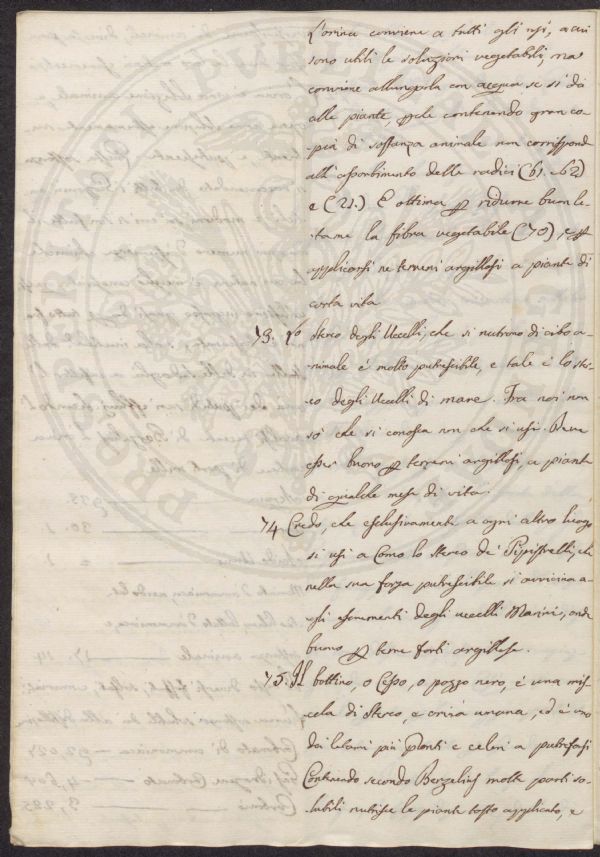 L'orina conviene a tutti gli usi, a cui
sono utili le soluzioni vegetabili, ma
conviene allungarla con acqua se si dà
alle piante, contenendo gran co-
pia di sostanza animale non corrisponde
all'assorbimento delle radici (61. 62)
e (21.) È ottima p ridurre buon le-
tame la fibra vegetabile (70), e
applicarsi ne terreni argillosi a piante di
corta vita
73. Lo sterco degli Uccelli, che si nutrono di cibo a-
nimale é molto putrescibile, e tale é lo ster-
co degli Uccelli di mare. Fra noi non
só che si conosca non che si usi. Deve
esser buono p terreni argillosi, a piante
di qualche mese di vita.
74 Credo, che esclusivamente a ogni altro luogo
si usi a Como lo sterco de' Pipistrelli, che
nella sua forza putrescibile si avvicina a-
gli escrementi degli uccelli Marini, onde
buono p terre forti argillose.
75. Il bottino, o Cesso, o pozzo nero, é una mis-
cela di sterco, e orina umana, ed é uno
dai letami più pronti e celeri a putrefarsi
Contenendo secondo Berzelius molte parti so-
lubili nutrisce le piante tosto applicato, e